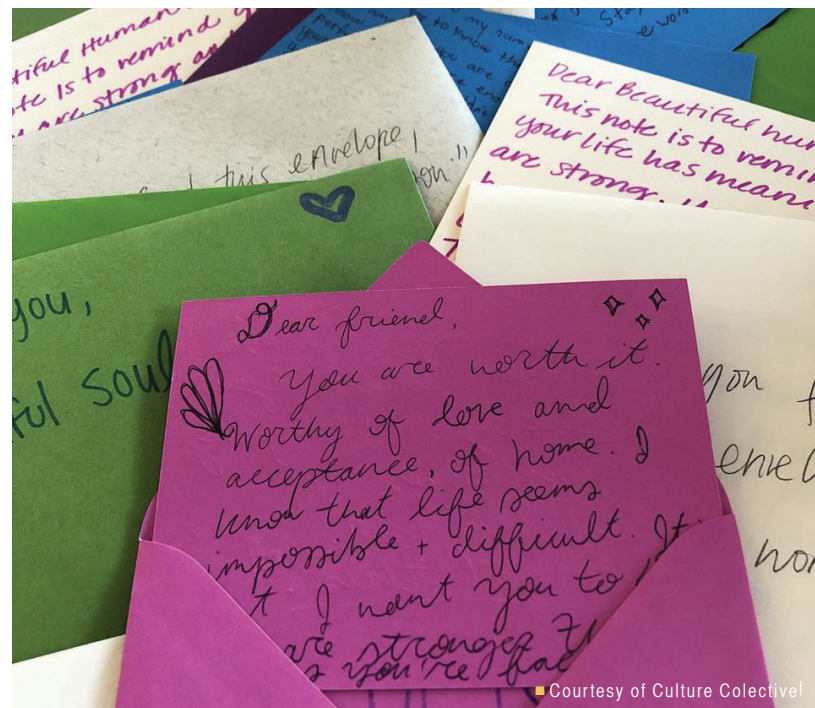 tiful Human
ote is to remind y
are strong an
my nam
to know th
you are
Dear Beautiful hu
This note is to remi
your life has meani
are strong.
this envelope,
on."
you,
ful soul
Dear friend,
You are worth it.
Worthy of love and
acceptance, of home. I
know that life seems
impossible + difficult. It
t I want you to
are stronger
you're fac
you f
envel
wor
Courtesy of Culture Colective